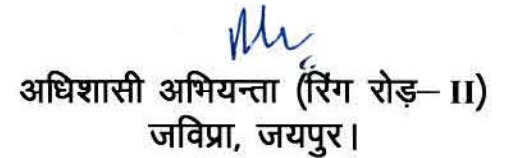 अधिशासी अभियन्ता (रिंग रोड़– II)
जविप्रा, जयपुर।